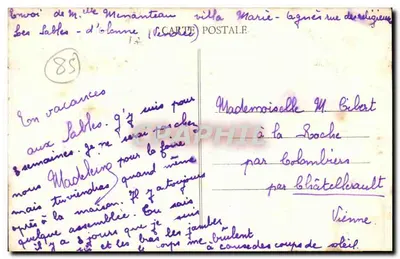 Envoi de Mlle Menanteau villa Marie-Agnès rue des religieuses
Les Sables-d'Olonne (Vendée)
CARTE POSTALE
85
En vacances
aux Sables. J'y suis pour
3 semaines. Je ne serai pas chez
nous Madeleine pour la foire
mais tu viendras quand même
après à la maison. Il y a toujours
quelque assemblée. Tu sais
il y a 3 jours que je suis
et les bras les jambes
le corps me brûlent
à cause des coups de soleil
Mademoiselle M. Cibert
à la Roche
par Colombiers
par Châtellerault
Vienne.